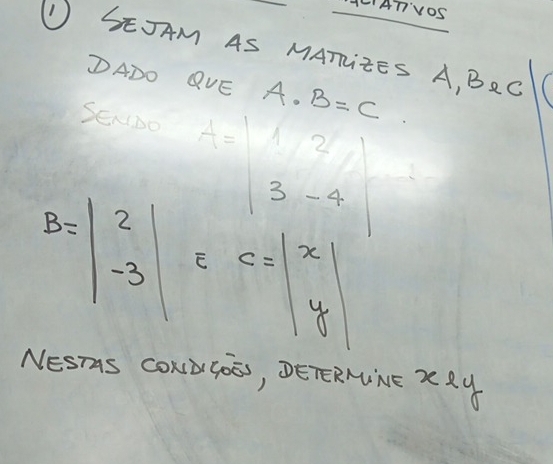 1 SEJAM AS MATRIZES A, B e C
DADO QUE A . B = C .
SENDO A = | 1 2 |
| 3 -4 |
B = | 2 | E C = | x |
| -3 | | y |
NESTAS CONDIÇÕES, DETERMINE x e y